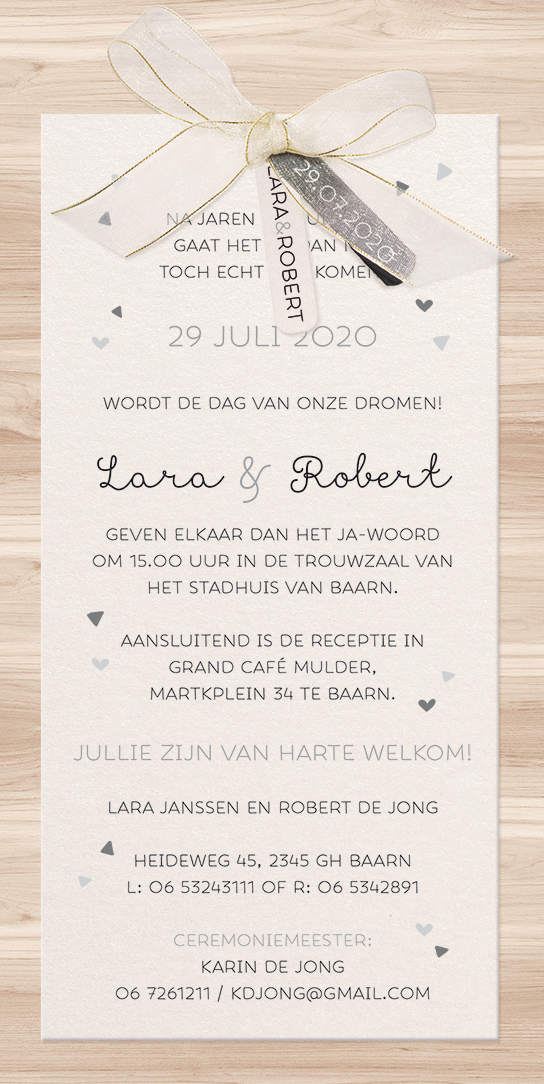 LARA & ROBERT
29.07.2020
NA JAREN
GAAT HET DAN
TOCH ECHT KOMEN
29 JULI 2020
WORDT DE DAG VAN ONZE DROMEN!
Lara & Robert
GEVEN ELKAAR DAN HET JA-WOORD
OM 15.00 UUR IN DE TROUWZAAL VAN
HET STADHUIS VAN BAARN.
AANSLUITEND IS DE RECEPTIE IN
GRAND CAFÉ MULDER,
MARTKPLEIN 34 TE BAARN.
JULLIE ZIJN VAN HARTE WELKOM!
LARA JANSSEN EN ROBERT DE JONG
HEIDEWEG 45, 2345 GH BAARN
L: 06 53243111 OF R: 06 5342891
CEREMONIEMEESTER:
KARIN DE JONG
06 7261211 / KDJONG@GMAIL.COM